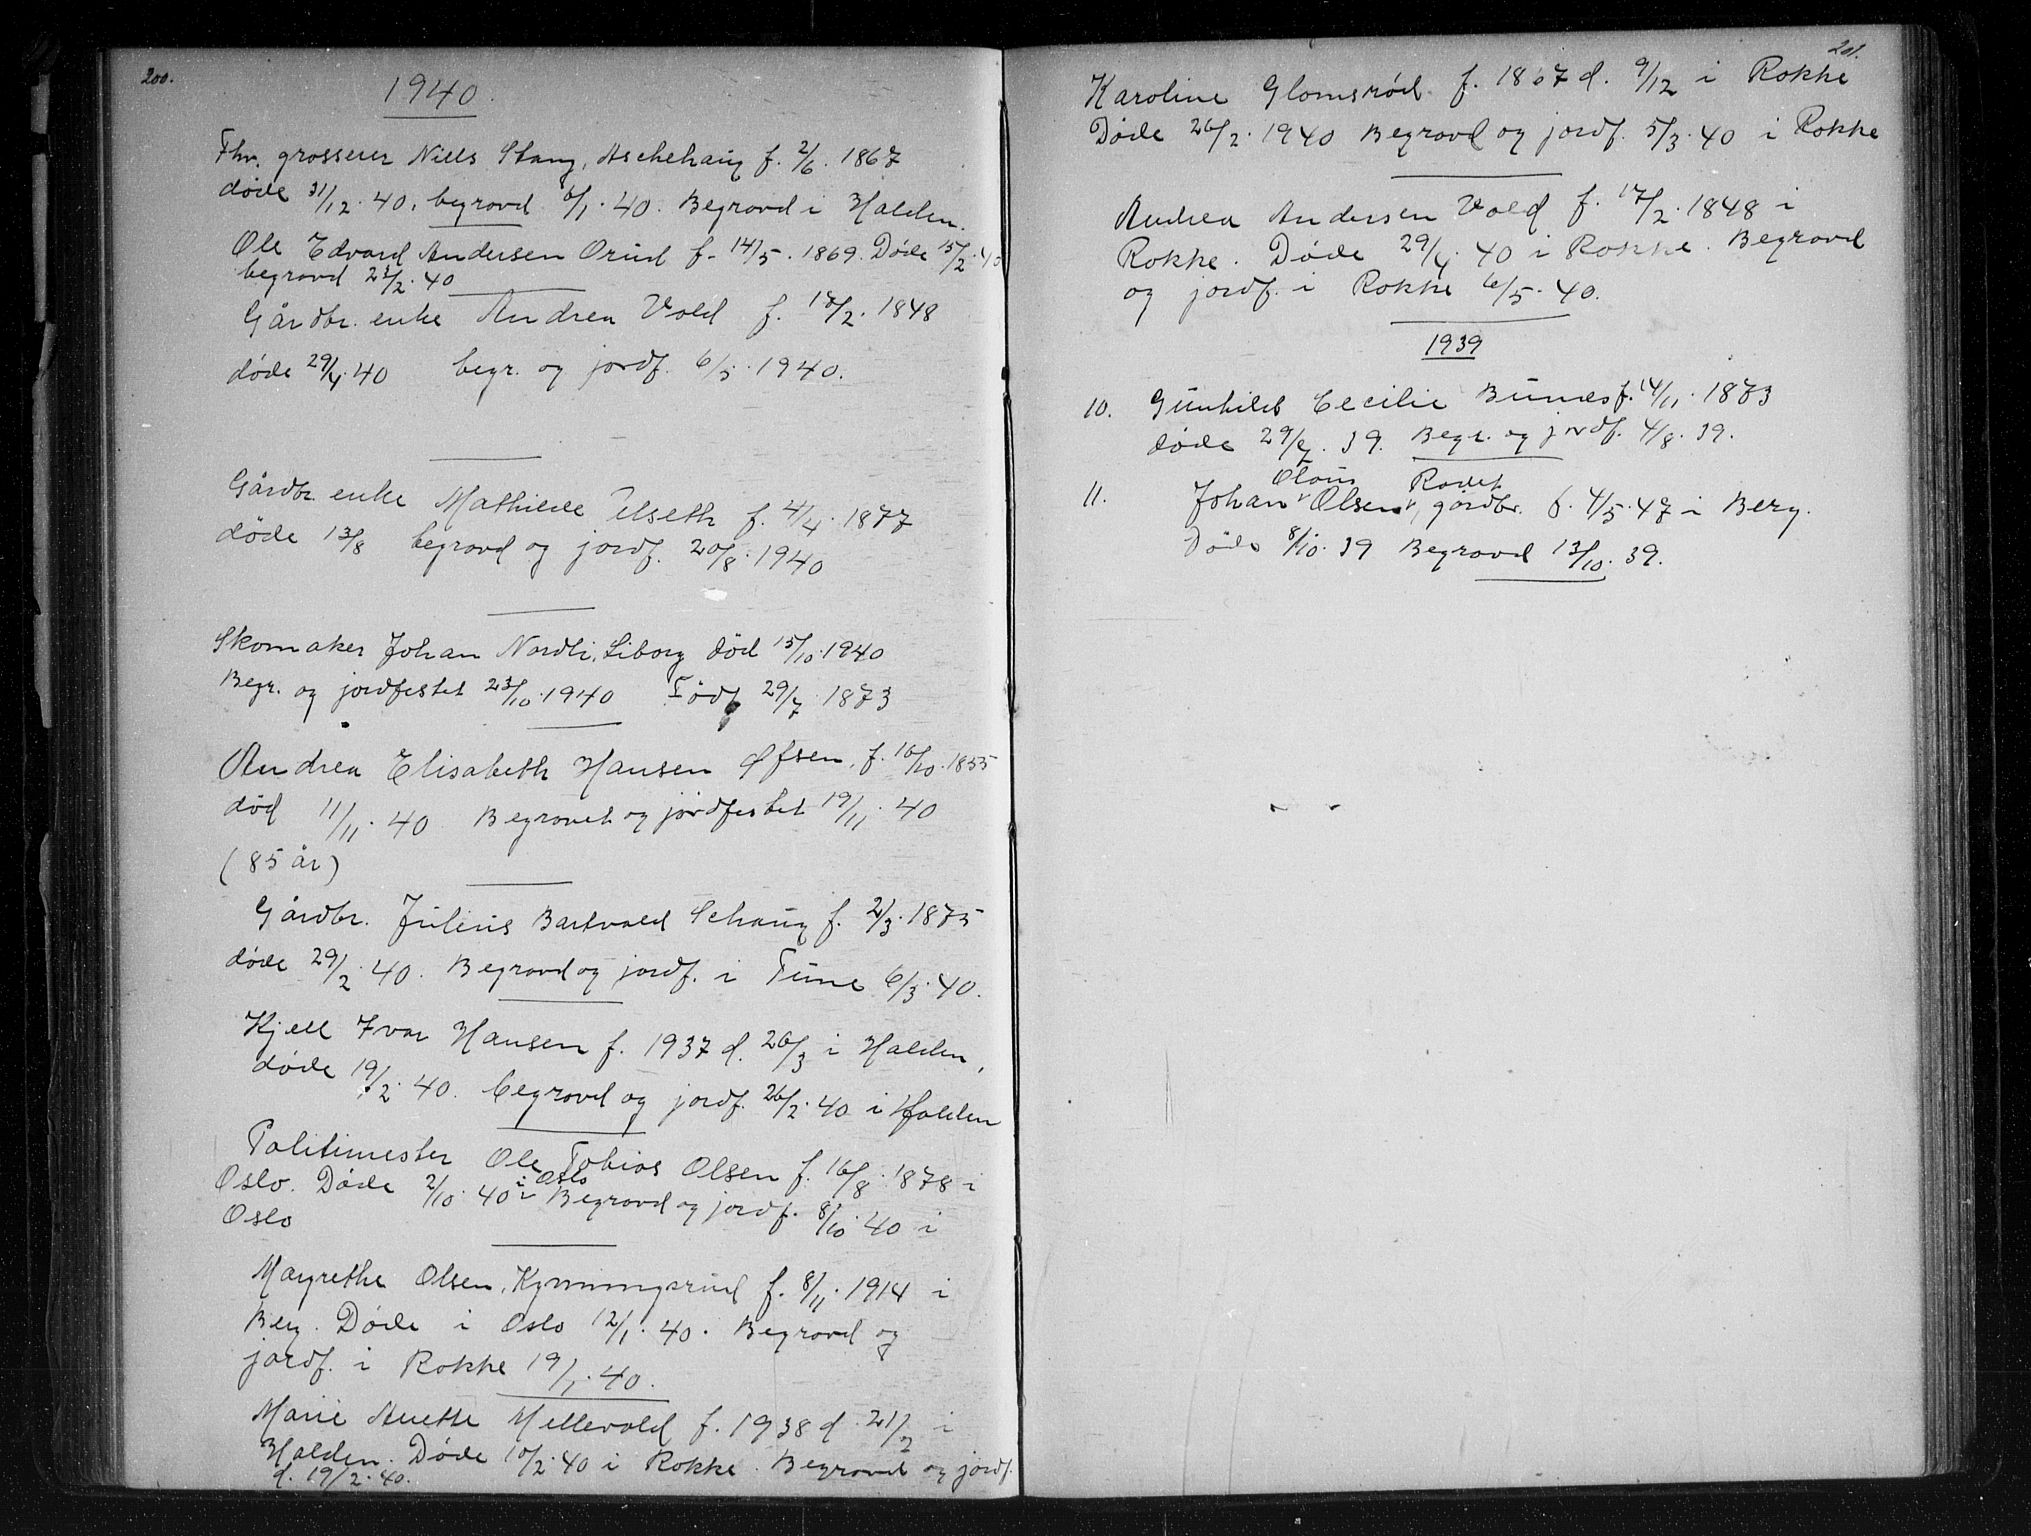 200.
1940.
Fhv. grosserer Niels Stang, Aschehaug f. 2/6. 1867
døde 31/12. 40. begravd 6/1. 40. Begravd i Halden.
Ole Edvard Andersen Orud f. 14/5. 1869. Døde 15/2. 40
begravd 23/2. 40
Gårdbr. enke Andrea Vold f. 17/2. 1848
døde 29/4. 40 begr. og jordf. 6/5. 1940.
Gårdbr. enke Mathilde f. 4/4. 1877
døde 13/8 begravd og jordf. 20/8. 1940
Skomaker Johan Nordli, Liborg død 15/10. 1940
Begr. og jordfestet 23/10. 1940 Født 29/7. 1873
Andrea Elisabeth Hansen Øfsen, f. 16/10. 1855
død 11/11. 40 Begravet og jordfestet 19/11. 40
(85 år)
Gårdbr. Julius Bartvald Schaug f. 2/3. 1875
døde 29/2. 40. Begravd og jordf. i Tune 6/3. 40.
Kjell Ivar Hansen f. 1937 d. 26/3 i Halden,
døde 19/2. 40. begravd og jordf. 26/2. 40 i Halden
Politimester Ole Tobias Olsen f. 16/8. 1878 i
Oslo. Døde 2/10. 40 i Oslo Begravd og jordf. 8/10. 40 i
Oslo
Margrethe Olsen, f. 8/11. 1914 i
Berg. Døde i Oslo 12/1. 40. Begravd og
jordf. i Rokke 19/1. 40.
Marie Anette Hellevald f. 1938 d. 21/2 i
Halden. Døde 10/2. 40 i Rokke. Begravd og jordf.
d. 19/2. 40.
201.
Karoline Glomsrød f. 1867 d. 9/12 i Rokke
Døde 26/2. 1940 Begravd og jordf. 5/3. 40 i Rokke
Andrea Andersen Vold f. 17/2. 1848 i
Rokke. Døde 29/4. 40 i Rokke. Begravd
og jordf. i Rokke 6/5. 40.
1939
10. Gunhild Cecilie Bunæs f. 14/11. 1873
døde 29/7. 39. Begr. og jordf. 4/8. 39.
11. Johan Olaus Olsen Rødet, gårdbr. f. 4/5. 47 i Berg.
Døde 8/10. 39 Begravd 13/10. 39.